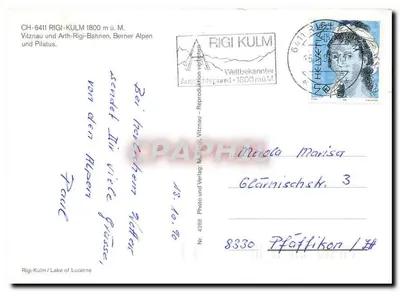 CH-6411 RIGI-KULM 1800 m ü. M.
Vitznau und Arth-Rigi-Bahnen, Berner Alpen
und Pilatus.
RIGI KULM
Weltbekannter
Aussichtspunkt · 1800 m ü M
6411
HELVETIA
Bei herrlichem Wetter
sendet Dir viele Grüsse,
von den Alpen
Paul
13.10.90
Nr. 4298 Photo und Verlag: Vitznau - Reproduktion verboten
Merola Marisa
Glärnischstr. 3
8330 Pfäffikon / ZH
Rigi-Kulm / Lake of Lucerne